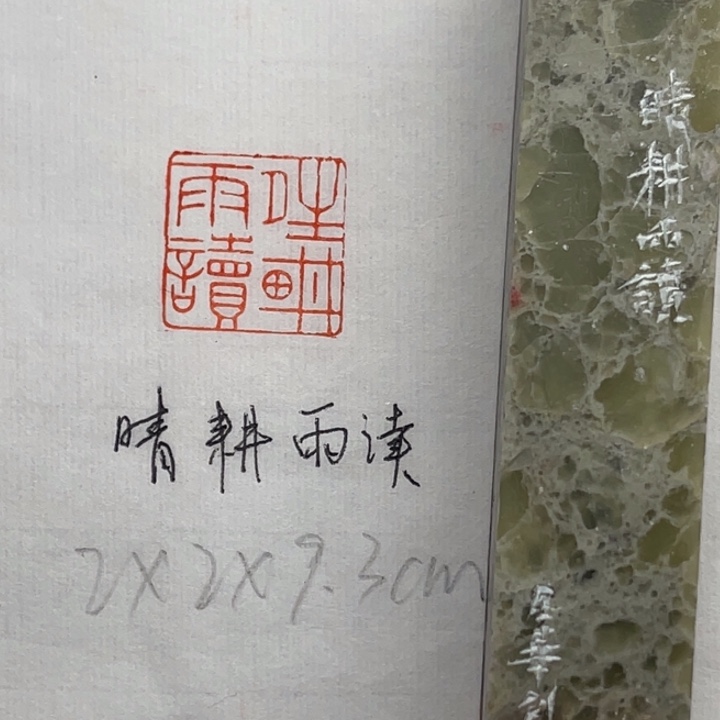 夝畊雨讀
晴耕雨读
2X2X9.3cm
晴耕雨讀